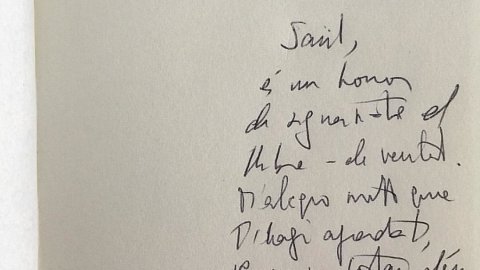 Sasil,
és un honor
de signar-te el
llibre - de veritat.
M'alegro molt que
t'hagi agradat,